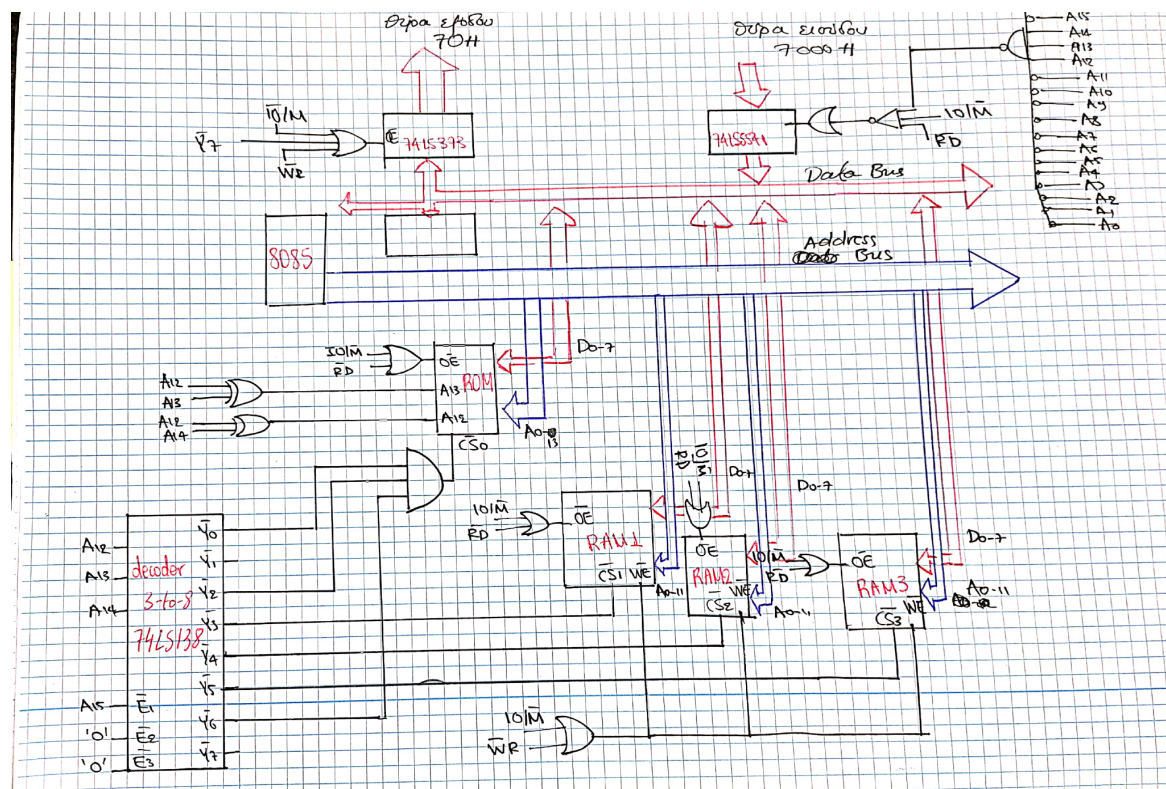 Θύρα εξόδου
70H
Θύρα εισόδου
7000H
A15
A14
A13
A12
A11
A10
A9
A8
A7
A6
A5
A4
A2
A1
A0
IO/M̅
R̅D̅
I̅O̅/M
Y̅7
W̅R̅
E
74LS373
74LS541
Data Bus
8085
Address
Bus
IO/M̅
R̅D̅
O̅E̅
ROM
A13
A12
C̅S̅0
A12
A13
A12
A14
D0-7
A0-13
decoder
3-to-8
74LS138
A12
A13
A14
A15
'0'
'0'
E̅1
E̅2
E̅3
Y̅0
Y̅1
Y̅2
Y̅3
Y̅4
Y̅5
Y̅6
Y̅7
IO/M̅
R̅D̅
O̅E̅
RAM1
C̅S̅1 W̅E̅
A0-11
IO/M̅
R̅D̅
O̅E̅
RAM2
W̅E̅
C̅S̅2
D0-7
A0-11
IO/M̅
R̅D̅
O̅E̅
RAM3
W̅E̅
C̅S̅3
D0-7
A0-11
IO/M̅
W̅R̅